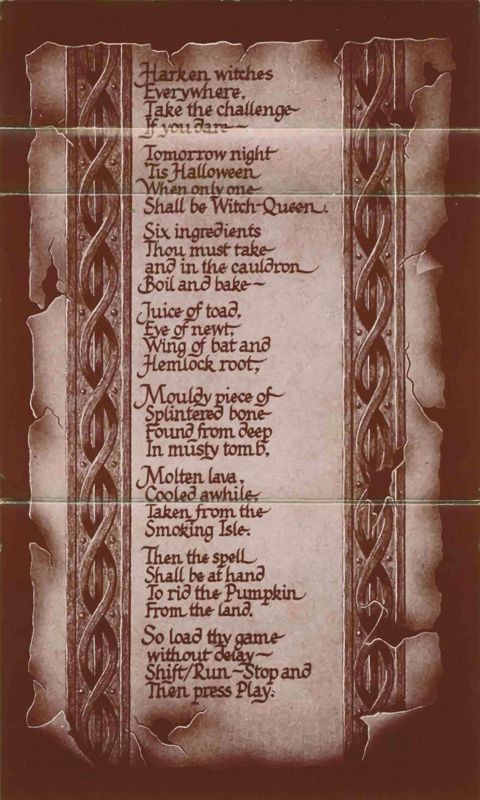 Harken witches
Everywhere,
Take the challenge
If you dare~
Tomorrow night
'Tis Halloween
When only one
Shall be Witch-Queen.
Six ingredients
Thou must take
and in the cauldron
Boil and bake~
Juice of toad,
Eye of newt,
Wing of bat and
Hemlock root,
Mouldy piece of
Splintered bone
Found from deep
In musty tomb,
Molten lava,
Cooled awhile,
Taken from the
Smoking Isle.
Then the spell
Shall be at hand
To rid the Pumpkin
From the land.
So load thy game
without delay~
Shift/Run~Stop and
Then press Play.